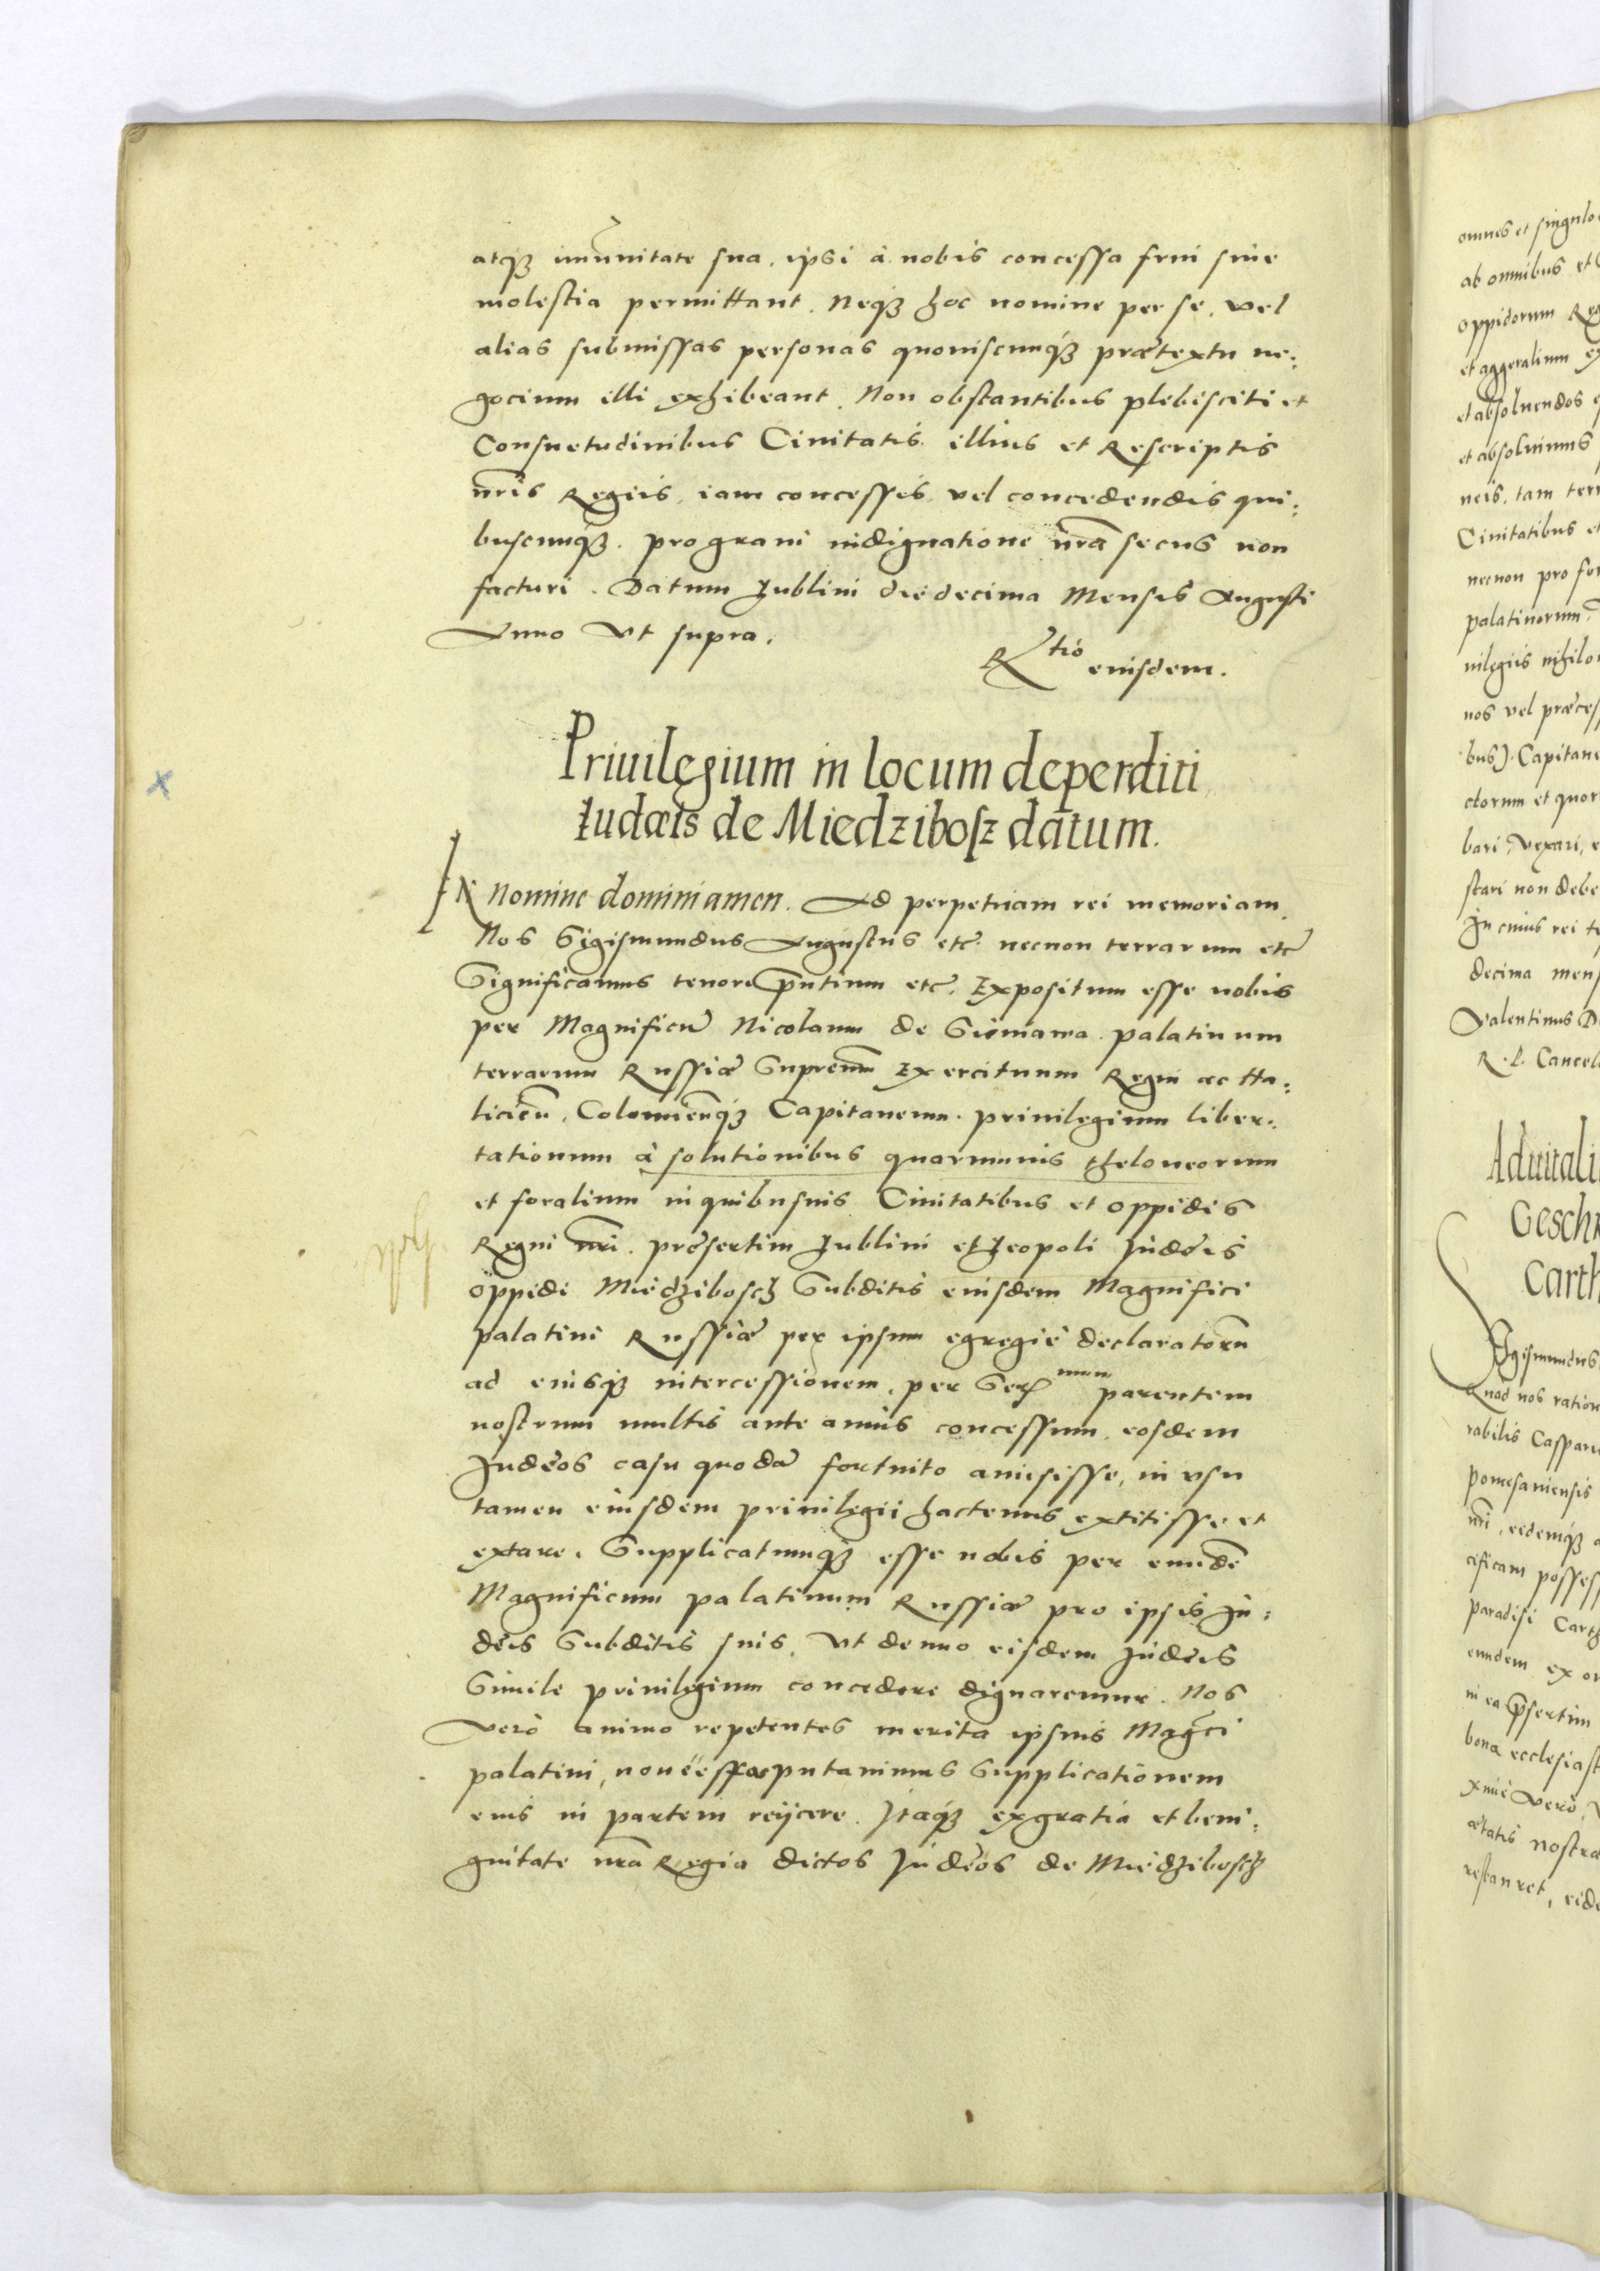 atq3 imunitate sua, ipsi à nobis concessa frui sine
molestia permittant. Neq3 hoc nomine per se, vel
alias submissas personas quouiscunq3 prætextu ne:
gocium illi exhibeant. Non obstantibus plebisciti et
Consuetudinibus Ciuitatis illius et Rescriptis
nris Regiis, iam concessis vel concedendis qui:
buscunq3. pro graui indignatione nra secus non
facturi. Datum Lublini die decima Mensis Augusti
Anno Vt supra.
Rtio eiusdem.
Priuilegium in locum deperditi
Iudæis de Miedzibosz datum.
IN nomine domini amen. Ad perpetuam rei memoriam.
Nos Sigismundus Augustus etc. necnon terrarum etc
Significamus tenore pntium etc. Expositum esse nobis
per Magnificu Nicolaum de Sieniawa palatinum
terrarum Russiæ Supremu Exercituum Regni ac Ha:
licien, Colomienq3 Capitaneum. priuilegium liber:
tationum à solutionibus quarumuis theloneorum
et foralium in quibusuis Ciuitatibus et oppidis
Regni nri. præsertim Lublini et Leopoli Iudeis
oppidi Miedzibosch Subditis eiusdem Magnifici
palatini Russiæ per ipsum egregiè declaratoru
ad eiusq3 intercessionem, per Ser mum parentem
nostrum multis ante annis concessum, eosdem
Iudeos casu quoda fortuito amisisse, in vsu
tamen eiusdem priuilegii hactenus extitisse et
extare. Supplicatumq3 esse nobis per eunde
Magnificum palatinum Russiæ pro ipsis Iu:
deis Subditis suis, Vt denuo eisdem Iudeis
Simile priuilegium concedere dignaremur. Nos
Verò animo repetentes merita ipsius Magci
palatini, non esse putauimus Supplicationem
eius in partem reijcere. Itaq3 ex gratia et beni:
gnitate nra Regia dictos Iudeos de Miedzibosch
omnes et singulo
ab omnibus et
oppidorum Reg
et aggeralium ex
et absoluendos e
et absoluimus
neis, tam terr
Ciuitatibus et
necnon pro for
palatinorum
uilegiis nihilo
nos vel præces
bus). Capitane
ctorum et quor
bari, vexari, e
stari non debe
In cuius rei te
decima mens
Valentinus D
R. P. Cancel
Aduitali
Geschr
Carth
Sigismundus
Quod nos ration
rabilis Casparu
pomesaniensis
nri, eidemq3 a
cificam posses
paradisi Carth
eundem ex o
in ea psertim
bona ecclesiast
xime Verò, v
ætatis nostræ
restauret, eide